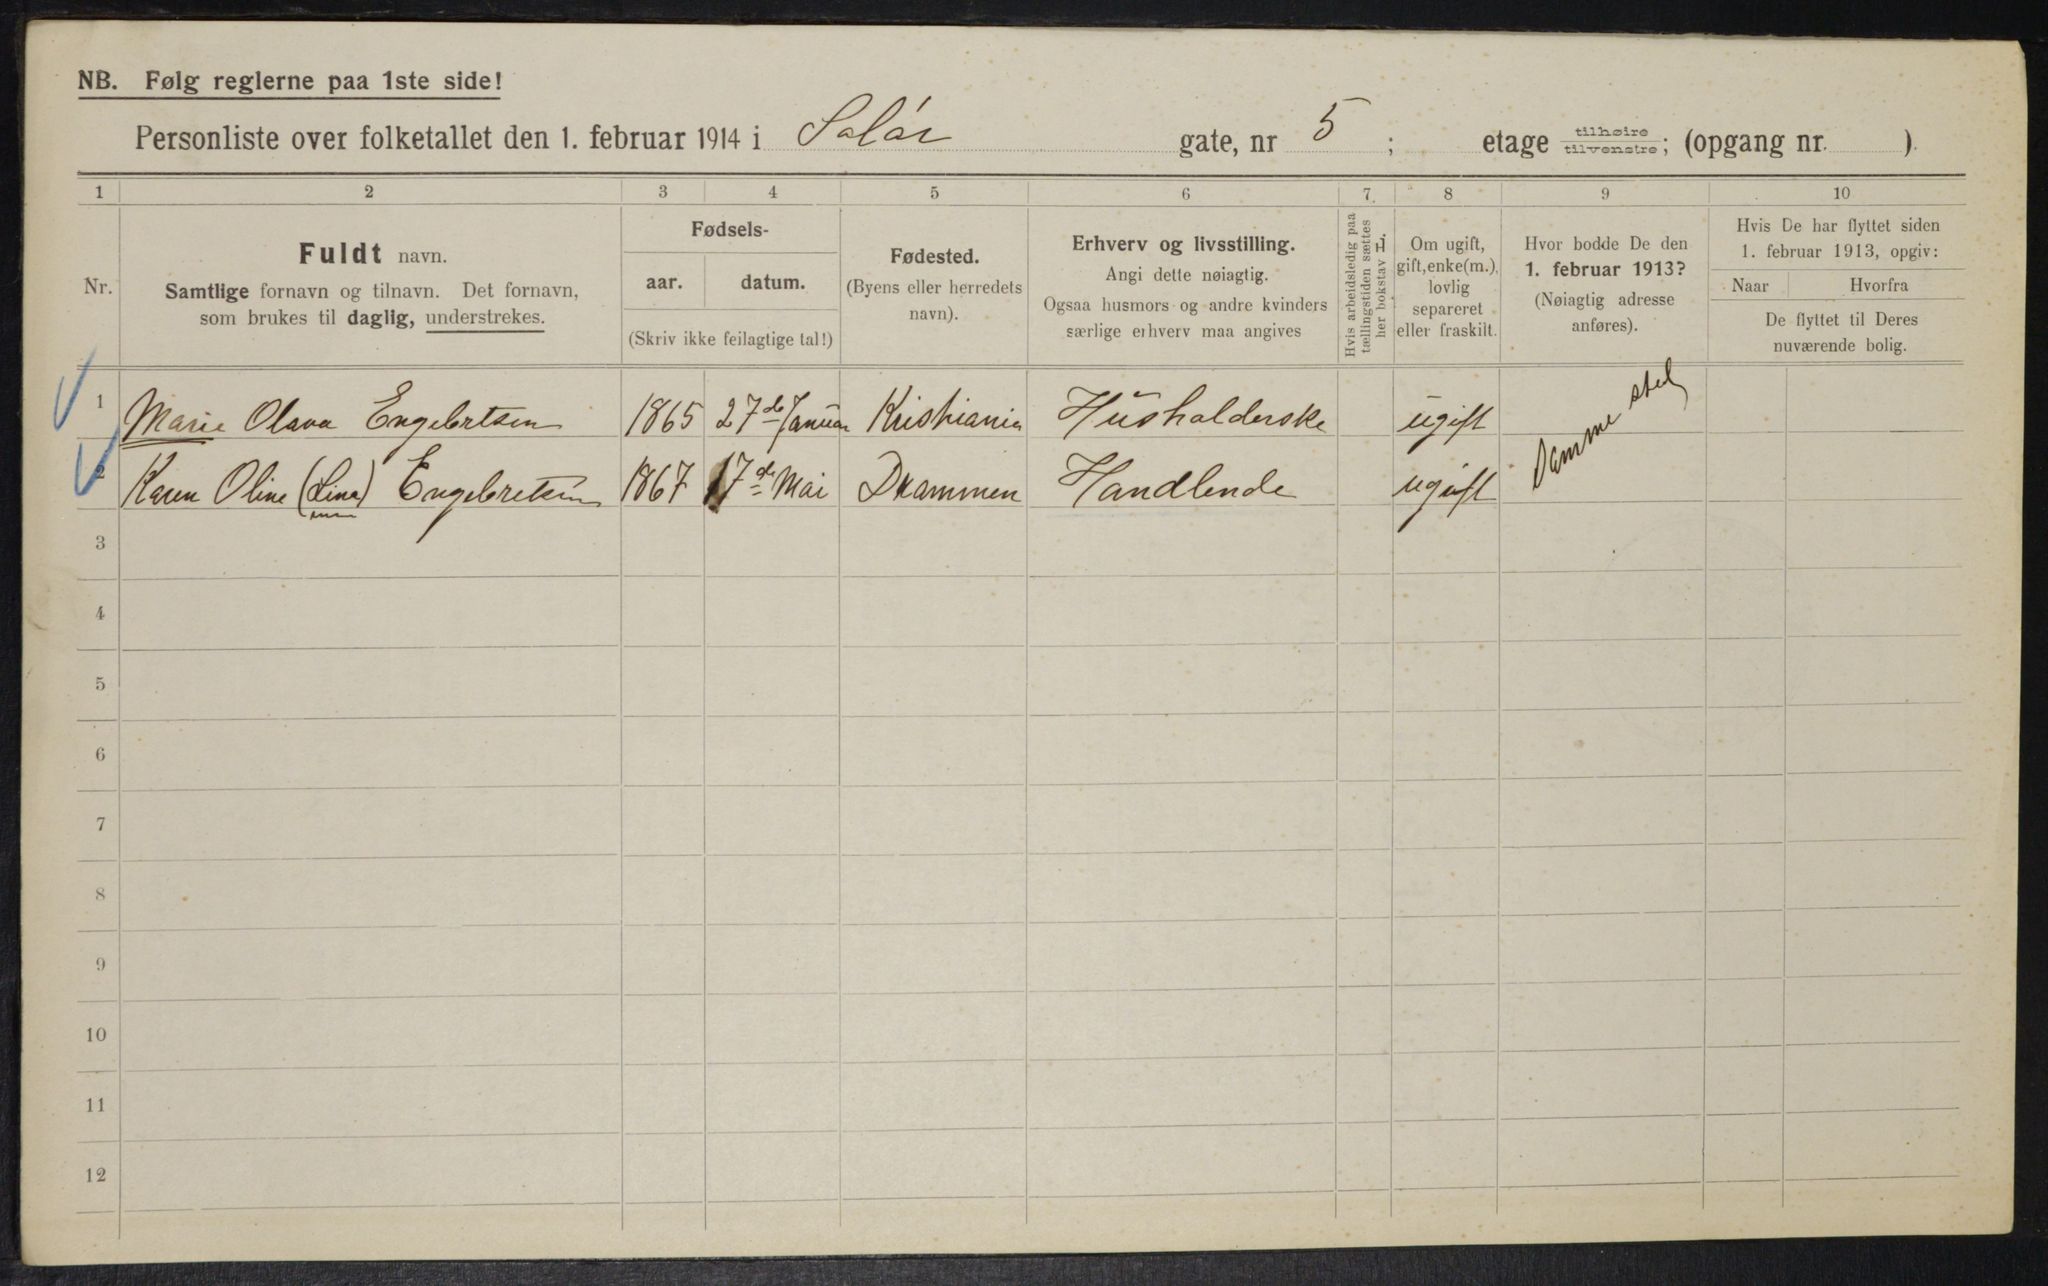 NB. Følg reglerne paa 1ste side!
Personliste over folketallet den 1. februar 1914 i Solør gate, nr 5 ; etage tilhøire tilvenstre; (opgang nr. ).
1 2 3 4 5 6 7. 8 9 10
Nr.
Fuldt navn.
Samtlige fornavn og tilnavn. Det fornavn,
som brukes til daglig, understrekes.
Fødsels-
aar. datum.
(Skriv ikke feilagtige tal!)
Fødested.
(Byens eller herredets
navn).
Erhverv og livsstilling.
Angi dette nøiagtig.
Ogsaa husmors og andre kvinders
særlige erhverv maa angives
Hvis arbeidsledig paa
tællingstiden sættes
her bokstav L.
Om ugift,
gift, enke(m.),
lovlig
separeret
eller fraskilt.
Hvor bodde De den
1. februar 1913?
(Nøiagtig adresse
anføres).
Hvis De har flyttet siden
1. februar 1913, opgiv:
Naar Hvorfra
De flyttet til Deres
nuværende bolig.
1 Marie Olava Engebretsen 1865 27de Januar Kristiania Husholderske ugift Samme sted
2 Karen Oline (Lina) Engebretsen 1867 17de Mai Drammen Handlende ugift
3
4
5
6
7
8
9
10
11
12